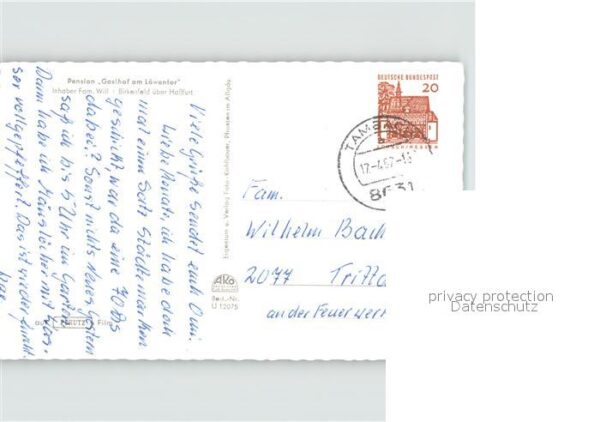 Pension „Gasthof am Löwentor"
Inhaber Fam. Will - Birkenfeld über Haßfurt
Viele Grüße sendet euch Omi.
Liebe Renate, ich habe doch
mal einen Satz Städte marken
geschickt, war da eine 70 Pfg
dabei? Sonst nichts Neues. Gestern
saß ich bis 5 Uhr im Garten.
Dann habe ich Mauslöcher mit Gas
ser vollgepfeffert. Das ist wieder
auf PERUTZ Film
Eigentum u. Verlag Foto-Kohlbauer, Pfronten im Allgäu
AKO
Best.-Nr.
U 12075
DEUTSCHE BUNDESPOST
20
TAMBACH
17.-4.67.-18
8631
Fam.
Wilhelm Bach
2077 Tritta
an der Feuerwer
privacy protection
Datenschutz